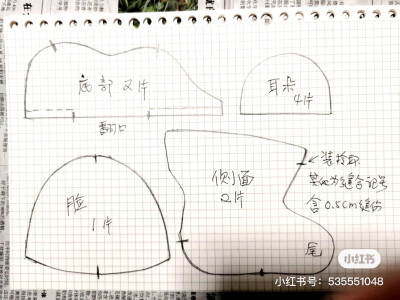 底部 2片
翻口
耳朵
4片
脸
1片
侧面
2片
←装拉链
其他为缝合记号
含0.5cm缝份
尾
小红书
小红书号：535551048